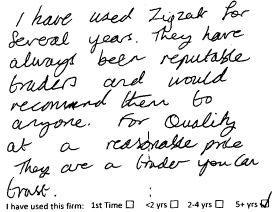 I have used Zigzak for
Several years. They have
always been reputable
traders and would
recommend them to
anyone. For Quality
at a reasonable price
They are a trader you can
trust.
I have used this firm: 1st Time ☐ <2 yrs ☐ 2-4 yrs ☐ 5+ yrs ☑